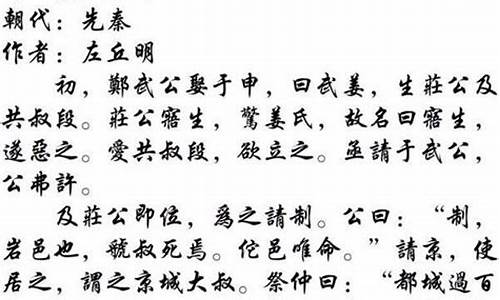 朝代：先秦
作者：左丘明
初，鄭武公娶于申，曰武姜，生莊公及
共叔段。莊公寤生，驚姜氏，故名曰寤生，
遂惡之。愛共叔段，欲立之。亟請于武公，
公弗許。
及莊公即位，爲之請制。公曰：“制，
岩邑也，虢叔死焉。佗邑唯命。”請京，使
居之，謂之京城大叔。祭仲曰：“都城過百